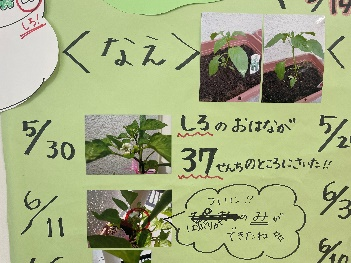 しろ!
<なえ> <
5/14
5/30
しろのおはなが
37せんちのところにさいた!!
5/2
6/11
ついに!!
のみが
できたね
6/3
6/10